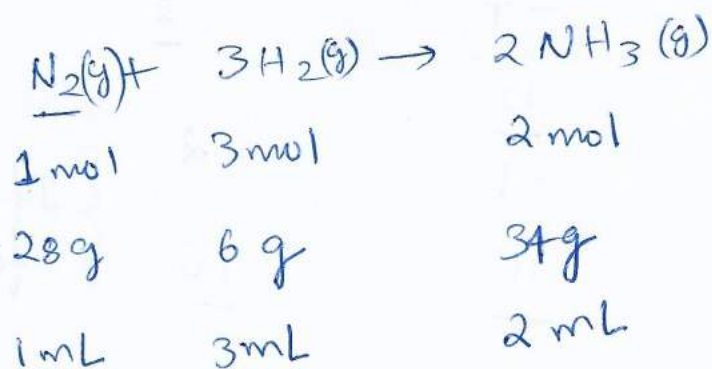 N₂(g) + 3H₂(g) → 2NH₃(g)
1 mol 3 mol 2 mol
28g 6g 34g
1 mL 3 mL 2 mL